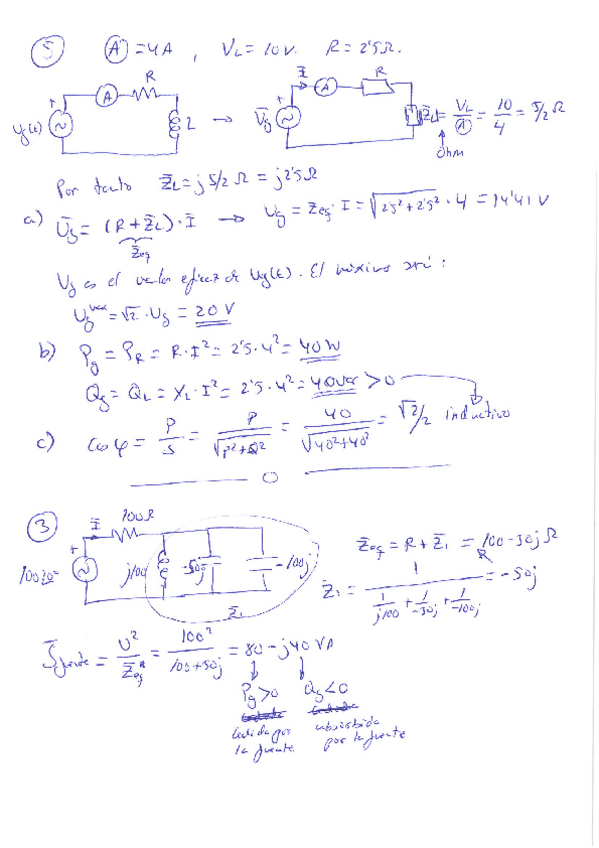 5 A = 4A , VL = 10V. R = 2'5Ω.
R
A
L
ug(t)
+
→
Ī
A
R
+
Ūg
Z̄L = VL/A = 10/4 = 5/2 Ω
Ohm
Por tanto Z̄L = j 5/2 Ω = j2'5Ω
a) Ūg = (R + Z̄L) · Ī → Ug = Zeq · I = √(2'5² + 2'5²) · 4 = 14'41 V
Z̄eq
Ug es el valor eficaz de ug(t). El máximo será:
Ug^max = √2 · Ug = 20 V
b) Pg = PR = R·I² = 2'5·4² = 40W
Qg = QL = XL·I² = 2'5·4² = 40var > 0
c) cos φ = P/S = P/√(P²+Q²) = 40/√(40²+40²) = √2/2 inductivo
0
3
Ī
100Ω
+
100∠0º
j100
-50j
-100j
Z̄1
Z̄eq = R + Z̄1 = 100 - 50j Ω
R
Z̄1 = 1/(1/j100 + 1/-50j + 1/-100j) = -50j
S̄fuente = U²/Z̄eq* = 100²/(100+50j) = 80 - j40 VA
Pg>0 Qg<0
cedida por absorbida
la fuente por la fuente